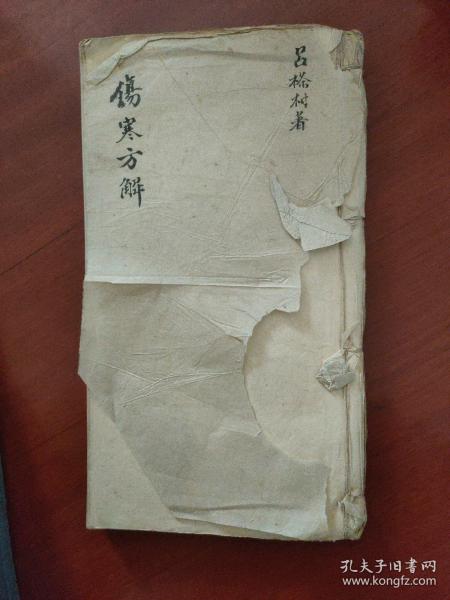 呂楪村著
傷寒方解
孔夫子旧书网
www.kongfz.com